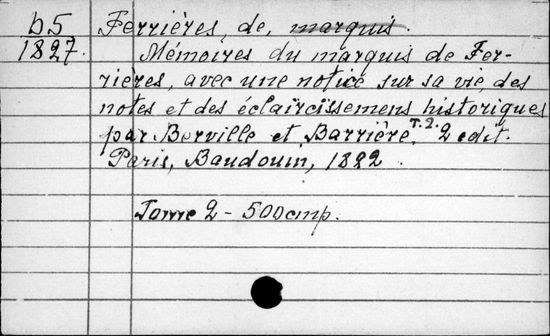 b5
1827.
Ferrières, de, marquis.
Mémoires du marquis de Fer-
rières, avec une notice sur sa vie, des
notes et des éclaircissemens historiques
par Berville et Barrière. T. 2. 2 edit.
Paris, Baudouin, 1822.
Tome 2 - 500 cmp.